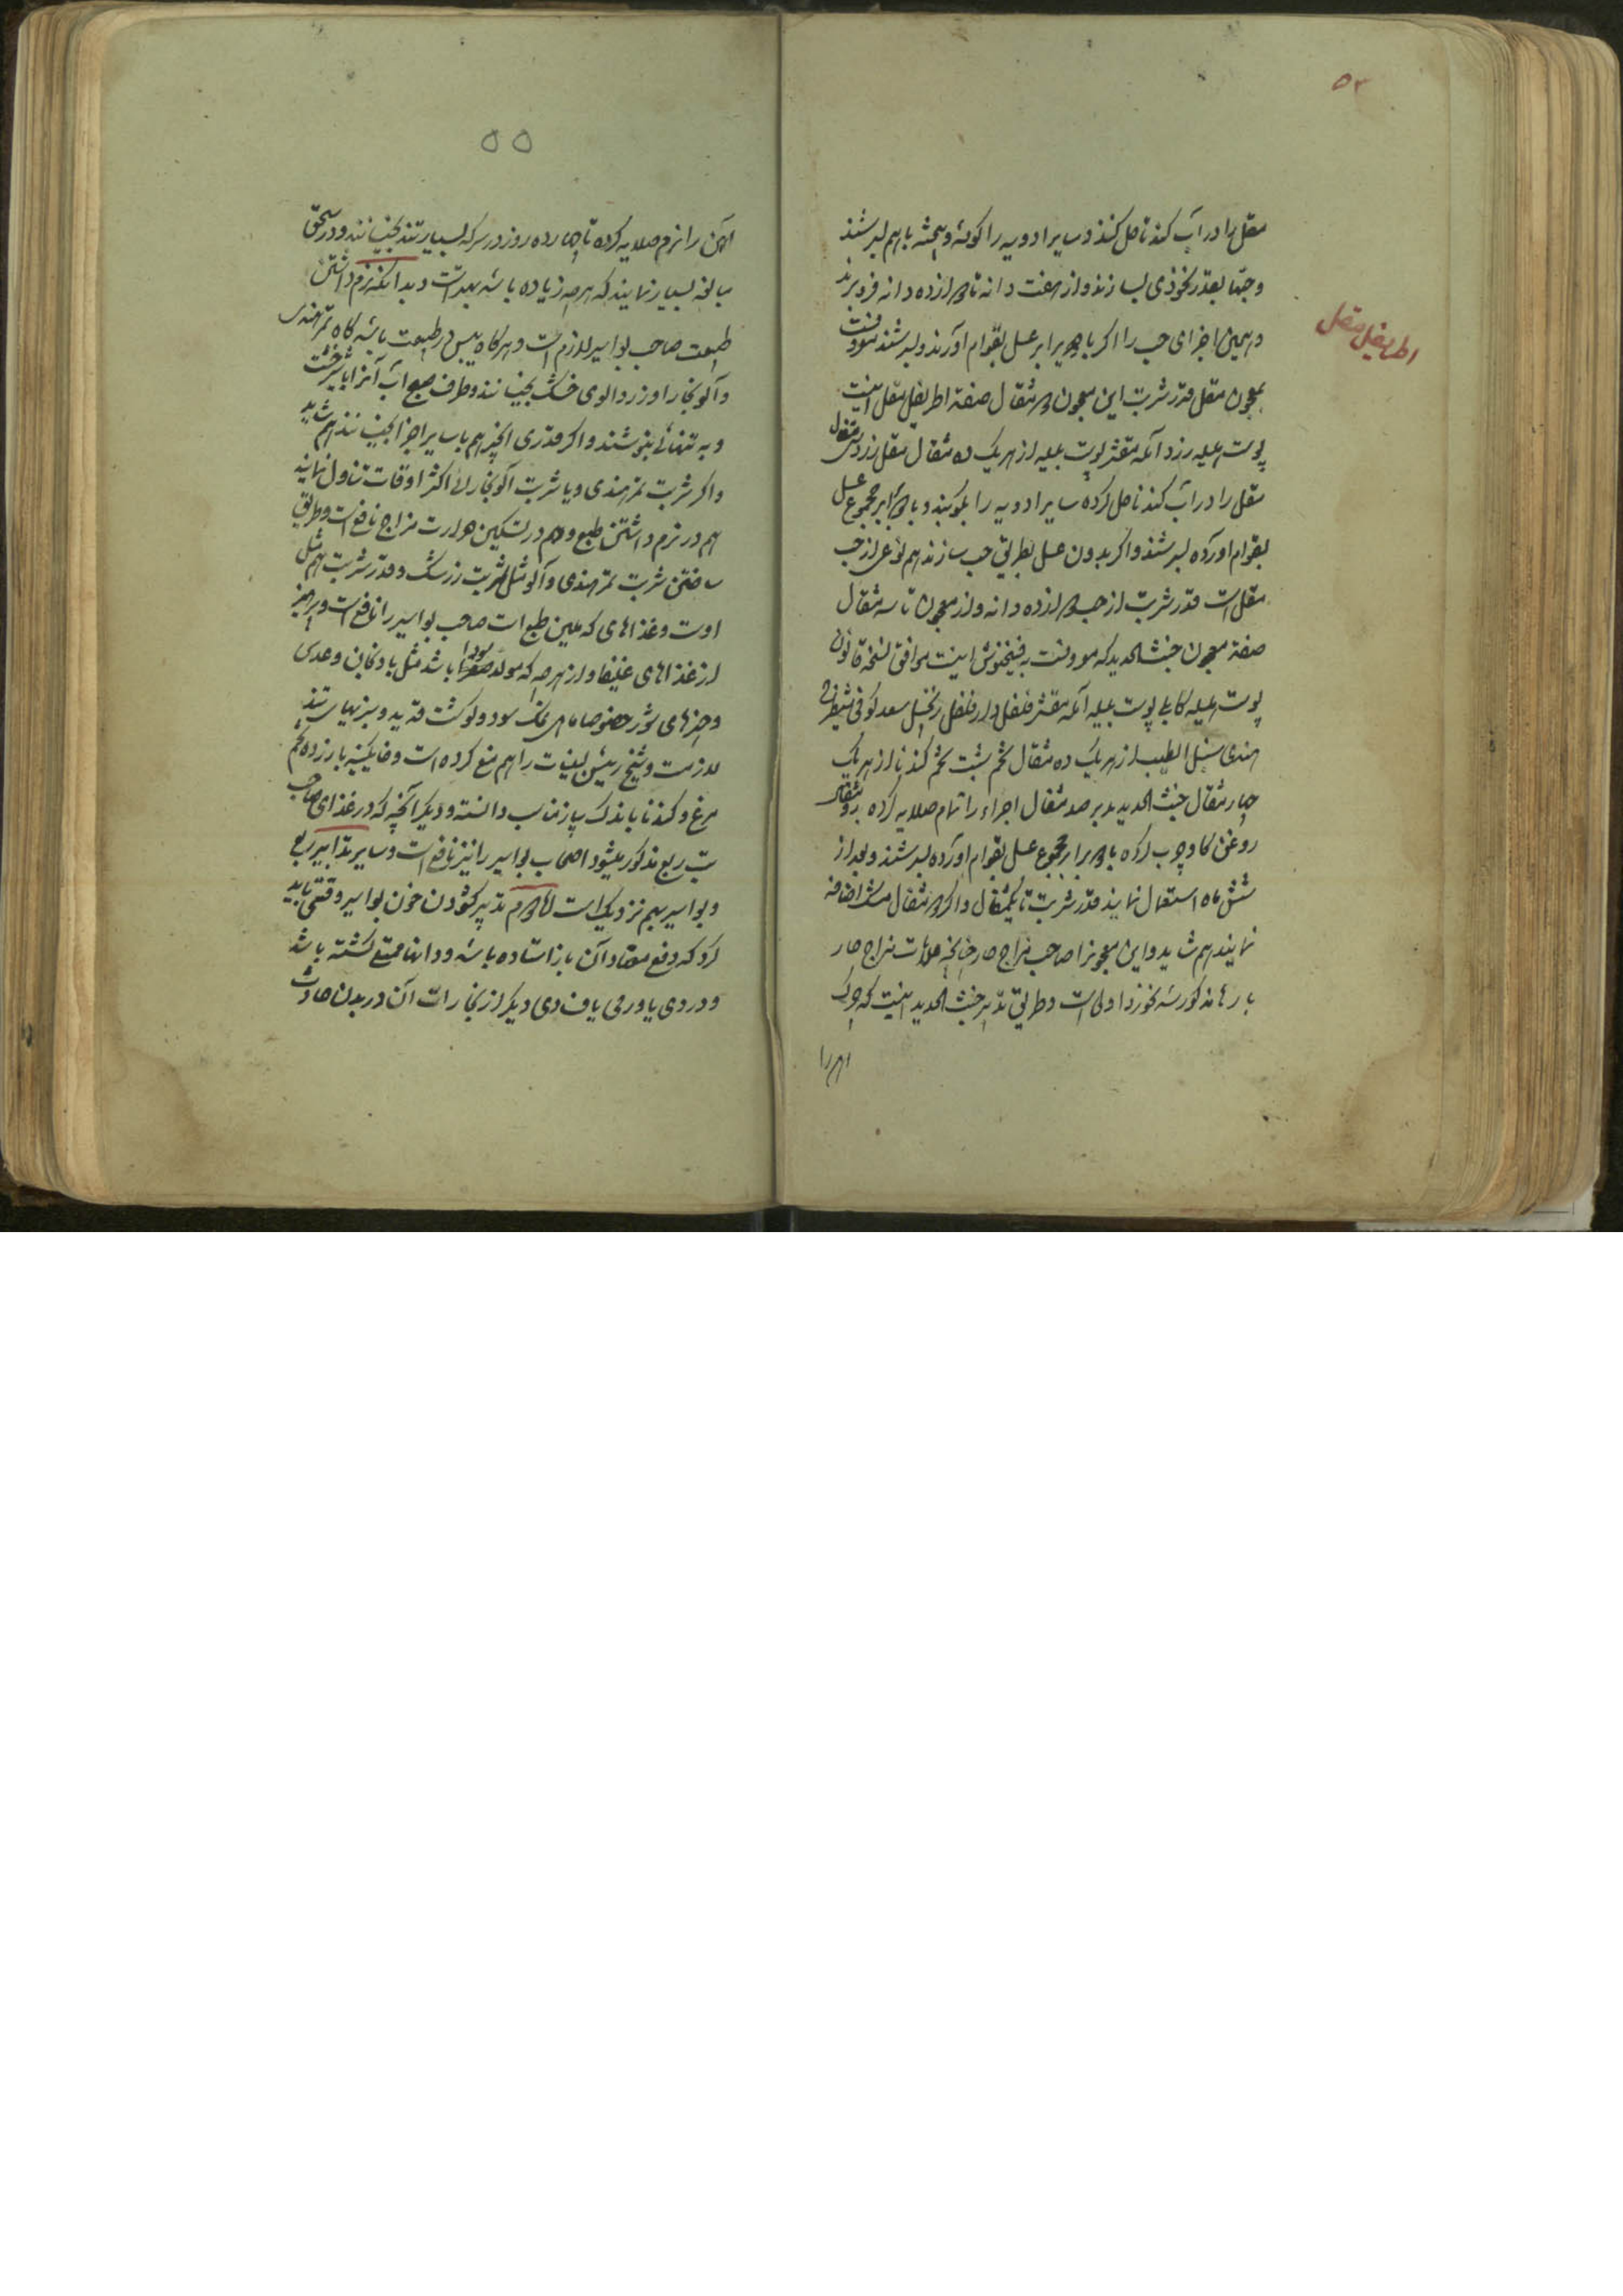 ۵۳
مقل را در آب گندنا حل کنند و سایر ادویه را کوفته و بیخته باهم بسرشند
و حبها بقدر نخودی بسازند و از هفت دانه تا دوازده دانه فرو برند
و همین اجزای حب را اگر با دو برابر عسل بقوام آورند و بسرشند موسومست
اطریفل مقل
بمعجون مقل قدر شربت این معجون دو مثقال صفة اطریفل مقل اینست
پوست هلیله زرد آمله مقشر پوست بلیله از هریک ده مثقال مقل ازرق سی مثقال
مقل را در آب گندنا حل کرده سایر ادویه را بکوبند و با دو برابر مجموع عسل
بقوام آورده بسرشند و اگر بدون عسل بطریق حب سازند هم نوعی از حب
مقل است قدر شربت از حب دوازده دانه و از معجون تا سه مثقال
صفة معجون خبث الحدید که موسومست به فنجنوش اینست موافق نسخه قانون
پوست هلیله کابلی پوست بلیله آمله مقشر فلفل دارفلفل زنجبیل سعد کوفی شیطرج
هندی سنبل الطیب از هریک ده مثقال تخم شبت تخم گندنا از هریک
چهار مثقال خبث الحدید مدبر صد مثقال اجزاء را تمام صلایه کرده
روغن گاو چرب کرده با دو برابر مجموع عسل بقوام آورده بسرشند و بعد از
شش ماه استعمال نمایند قدر شربت تا یکمثقال و اگر دو مثقال مشک اضافه
نمایند هم شاید و این معجون را صاحب مزاج حار چنانچه علامات مزاج حار
بارها مذکور شد نخورد اولی است و طریق تدبیر خبث الحدید اینست که چرک
آهن را
۵۵
آهن را نرم صلایه کرده تا چهارده روز در سرکه بسیار تند بخیسانند و در سحق
مبالغه بسیار نمایند که هرچه زیاده باشد بهتر است و بدانکه نرم داشتن
طبیعت صاحب بواسیر لازم است و هرگاه یبس در طبیعت باشد گاه تمر هندی
و آلو بخارا و زردآلوی خشک بخیسانند و طرف صبح آب آنرا با شیرخشت
و به تنهائی بنوشند و اگر قدری انجیر هم با سایر اجزا بخیسانند هم شاید
و اگر شربت تمر هندی و یا شربت آلو بخارا اکثر اوقات تناول نمایند
هم در نرم داشتن طبع و هم در تسکین حرارت مزاج نافع است و طریق
ساختن شربت تمر هندی و آلو مثل شربت زرشک و قدر شربت هم مثل
اوست و غذاهای که ملین طبع است صاحب بواسیر را نافع است و پرهیز
از غذاهای غلیظ و از هرچه که مولد سودا باشد مثل بادنجان و عدس
و چیزهای شور خصوصا ماهی نمک سود و گوشت قدید و پنیرها
لازمست و شیخ رئیس لبنیات را هم منع کرده است و خاگینه با زرده تخم
مرغ و گندنا با اندک پیاز مناسب دانسته و دیگر آنچه که در غذای صاحب
تب ربع مذکور میشود اصحاب بواسیر را نیز نافع است و سایر تدابیر ربع
و بواسیر بهم نزدیک است تدبیر گشودن خون بواسیر وقتی باید
کرد که دفع معتاد آن باز استاده باشد و دهانها ممتنع گشته باشد
و دردی یا ورمی یا فسادی دیگر از بخارات آن در بدن حادث